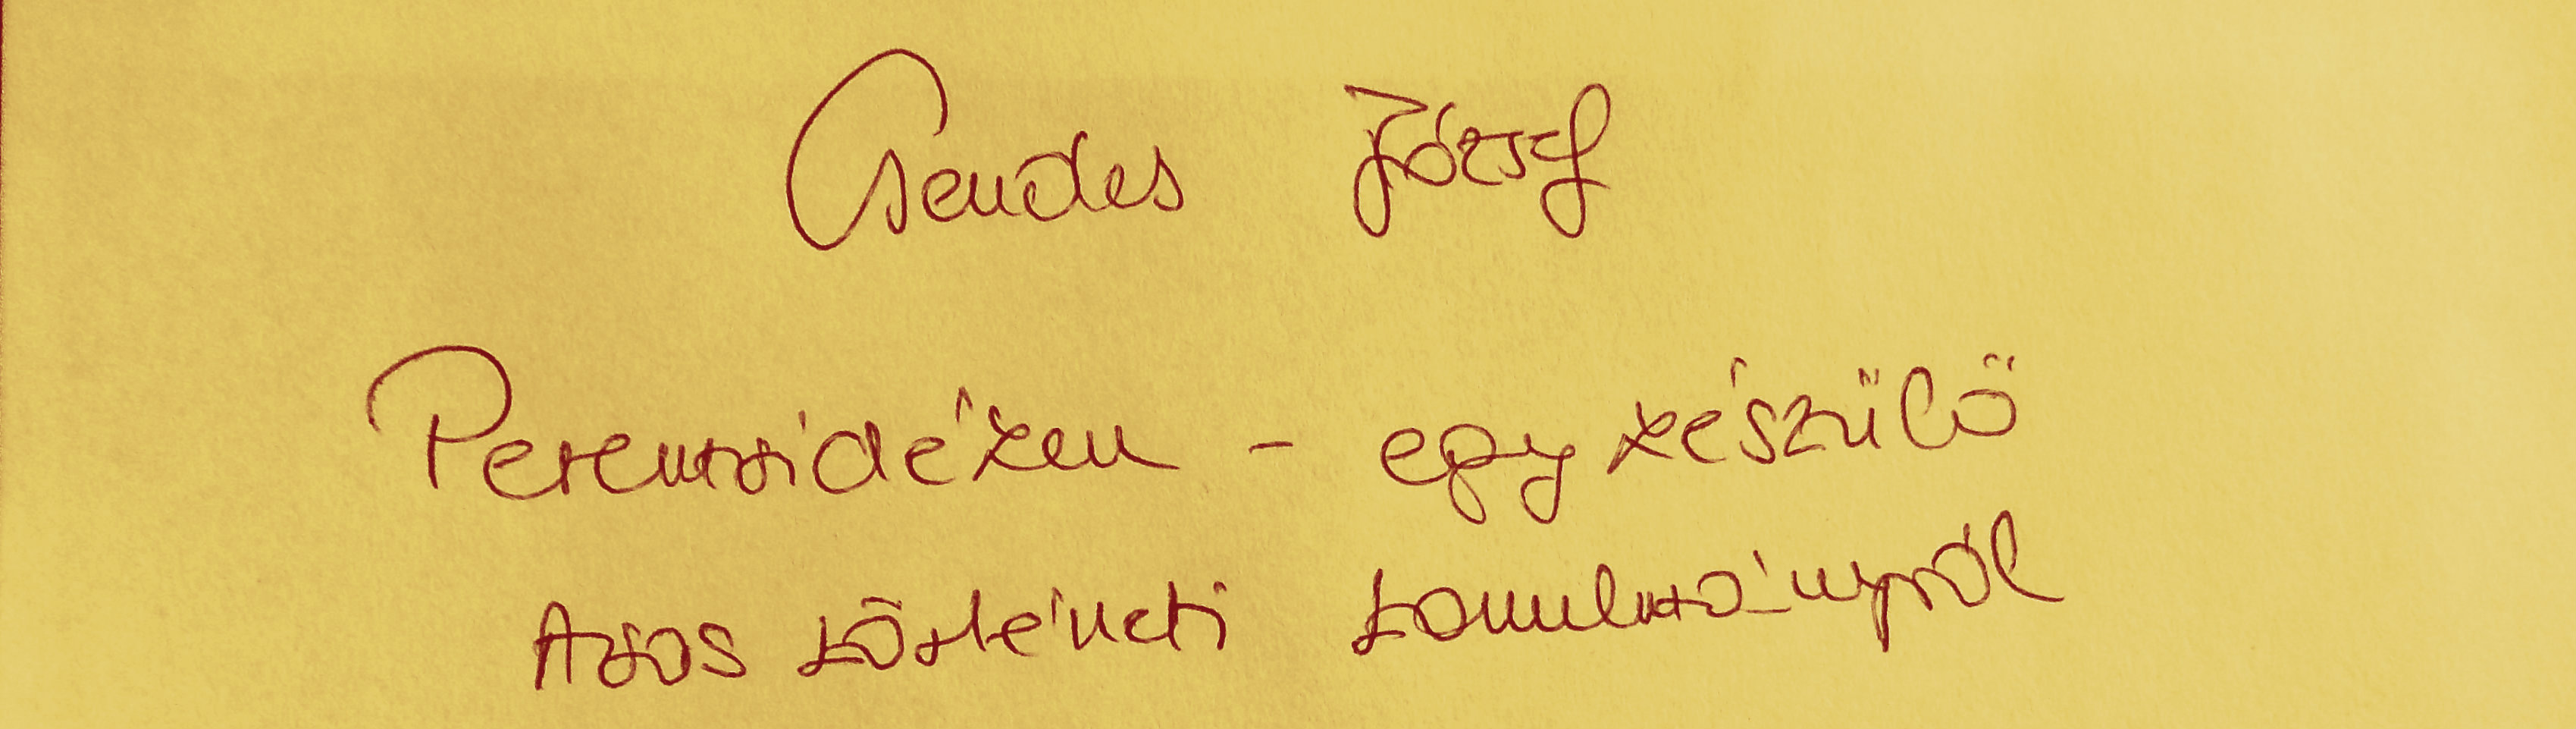 Csendes József
Peremvidéken - egy készülő
Avas történeti tanulmányról